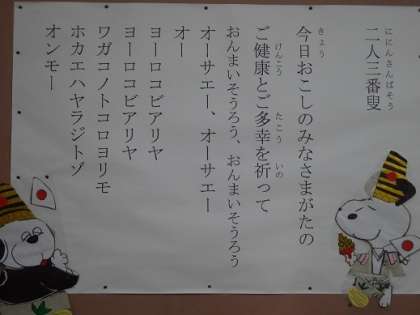 二人三番叟
ににんさんばそう
今日おこしのみなさまがたの
きょう
ご健康とご多幸を祈って
けんこう たこう いの
おんまいそうろう、おんまいそうろう
オーサエー、オーサエー
オー
ヨーロコビアリヤ
ヨーロコビアリヤ
ワガコノトコロヨリモ
ホカエハヤラジトゾ
オンモー